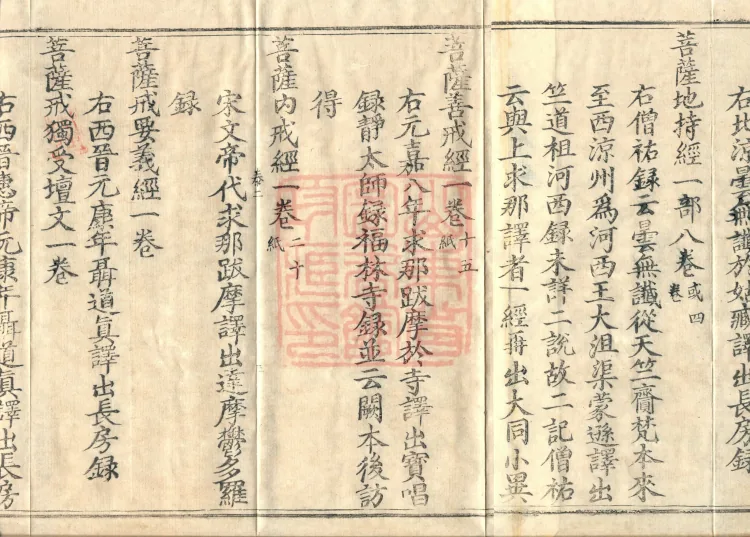 右北涼曇無讖於姑臧譯出長房錄
菩薩地持經一部八卷或四卷
右僧祐録云曇無讖從天竺齎梵本來
至西涼州為河西王大沮渠蒙遜譯出
竺道祖河西録未詳二說故二記僧祐
云與上求那譯者一經再出大同小異
菩薩善戒經一卷十五紙
右元嘉八年求那跋摩於寺譯出寶唱
録靜太師録福林寺録並云闕本後訪
得
菩薩内戒經一卷二十紙
卷二
宋文帝代求那跋摩譯出達摩鬱多羅
録
菩薩戒要義經一卷
右西晉元康年聶道真譯出長房録
菩薩戒獨受壇文一卷
右西晉惠帝元康年聶道真譯出長房